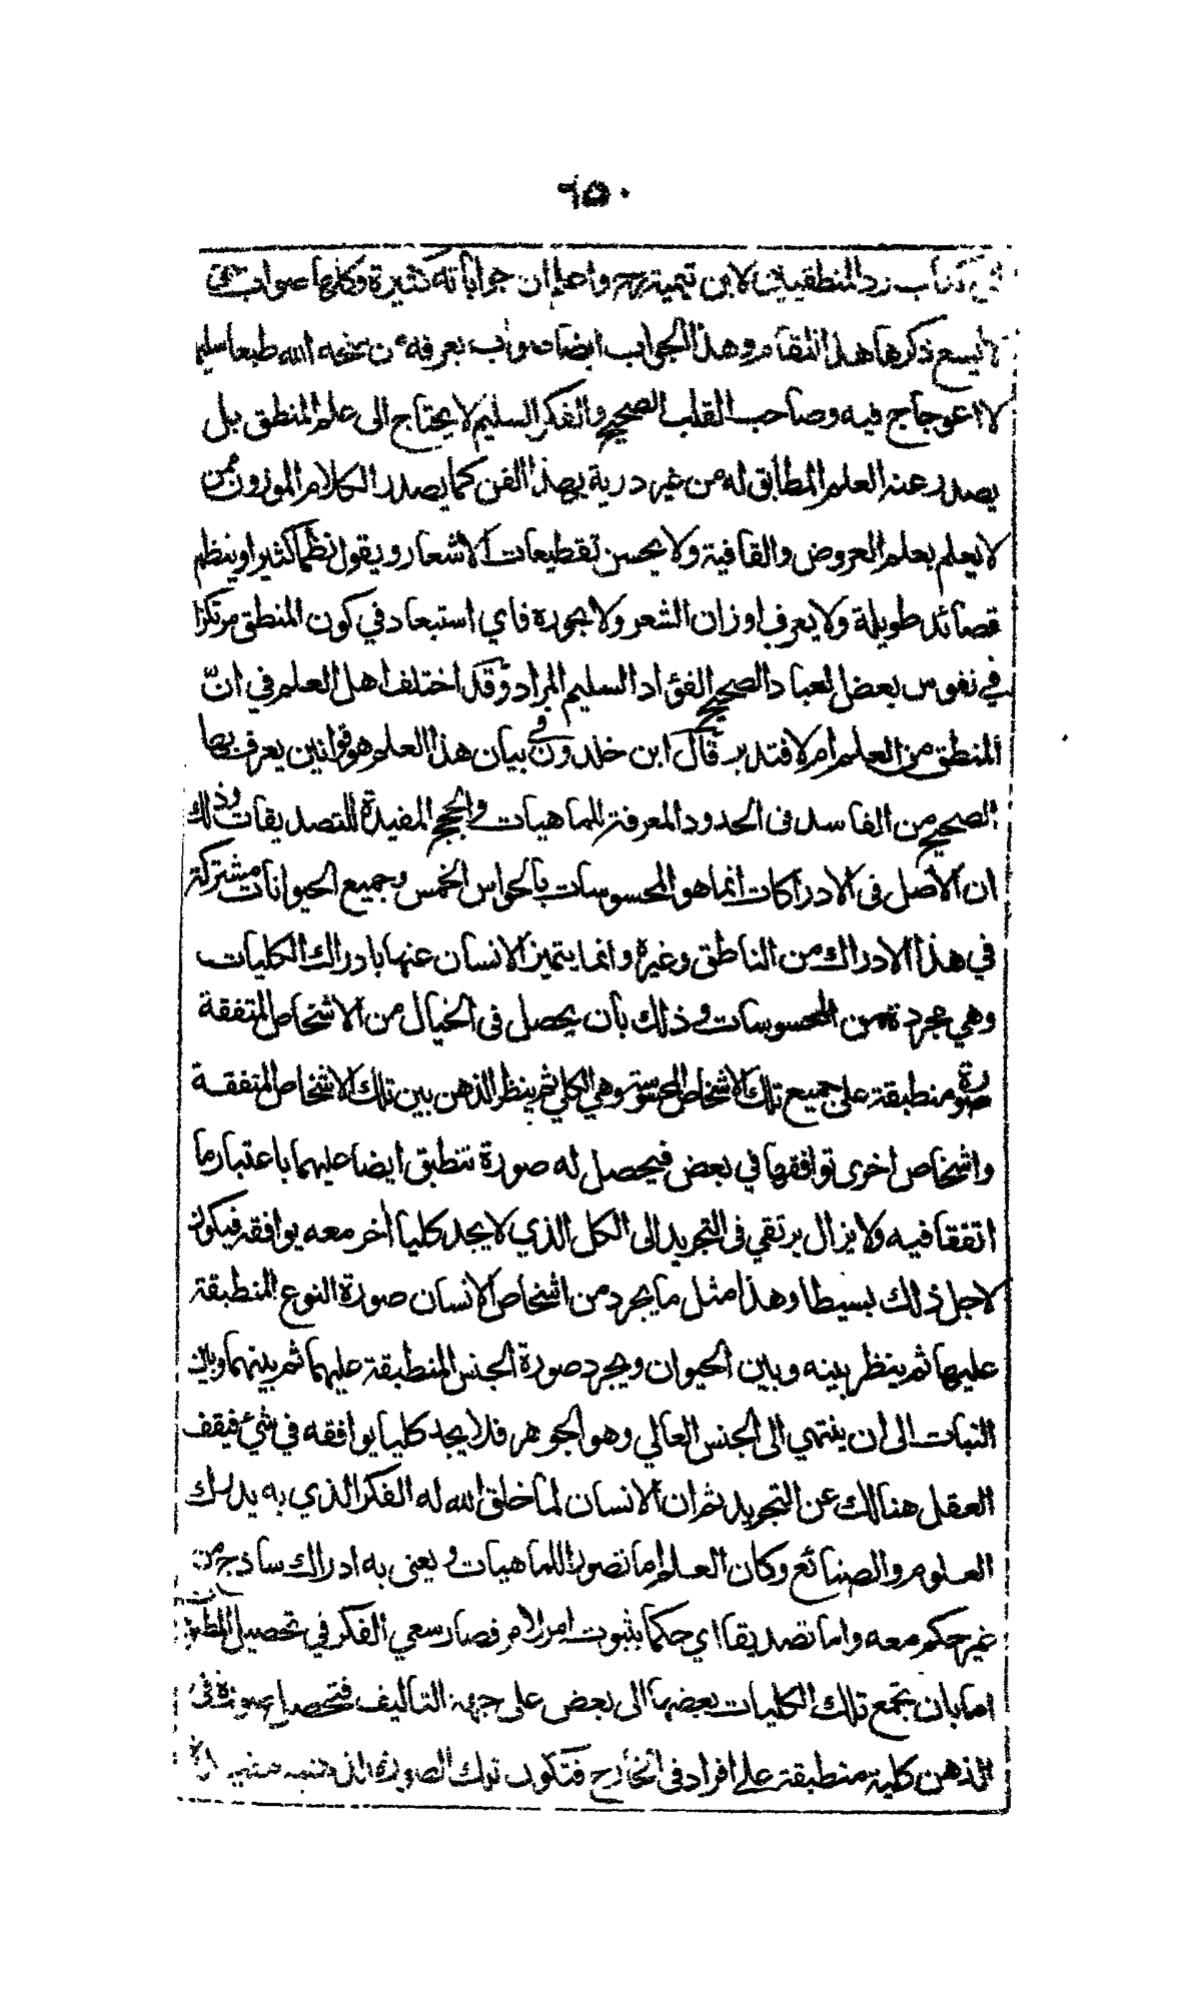 ٦٥٠
كتاب رد المنطقيين لابن تيمية رح واعلم ان جواباته كثيرة وكلها صواب حق
لا يسع ذكرها هذا المقام وهذا الجواب ايضا صواب يعرفه من منحه الله طبعا سليما
لا اعوجاج فيه وصاحب القلب الصحيح والفكر السليم لا يحتاج الى علم المنطق بل
يصدر عنه العلم المطابق له من غير درية بهذا الفن كما يصدر الكلام الموزون ممن
لا يعلم بعلم العروض والقافية ولا يحسن تقطيعات الاشعار ويقول نظما كثيرا وينظم
قصائد طويلة ولا يعرف اوزان الشعر ولا بحوره فاي استبعاد في كون المنطق مرتكزا
في نفوس بعض العباد الصحيح الفؤاد السليم المراد وقد اختلف اهل العلم في انّ
المنطق من العلم ام لا فتدبر قال ابن خلدون في بيان هذا العلم هو قوانين يعرف بها
الصحيح من الفاسد فى الحدود المعرفة للماهيات والحجج المفيدة للتصديقات وذلك
ان الاصل فى الادراكات انما هو المحسوسات بالحواس الخمس وجميع الحيوانات مشتركة
في هذا الادراك من الناطق وغيره وانما يتميز الانسان عنها بادراك الكليات
وهي مجردة من المحسوسات وذلك بان يحصل فى الخيال من الاشخاص المتفقة
صورة منطبقة على جميع تلك الاشخاص المحسوسة وهي الكلي ثم ينظر الذهن بين تلك الاشخاص المتفقة
واشخاص اخرى توافقها في بعض فيحصل له صورة تنطبق ايضا عليهما باعتبار ما
اتفقا فيه ولا يزال يرتقي فى التجريد الى الكل الذي لا يجد كليا أخر معه يوافقه فيكون
لاجل ذلك بسيطا وهذا مثل ما يجرد من اشخاص الانسان صورة النوع المنطبقة
عليها ثم ينظر بينه وبين الحيوان ويجرد صورة الجنس المنطبقة عليهما ثم بينهما وبين
النبات الى ان ينتهي الى الجنس العالي وهو الجوهر فلا يجد كليا يوافقه في شئ فيقف
العقل هنالك عن التجريد ثم ان الانسان لما خلق الله له الفكر الذي به يدرك
العلوم والصنائع وكان العلم اما تصورا للماهيات ويعنى به ادراك ساذج من
غير حكم معه واما تصديقا اي حكما بثبوت امر لامر فصار سعي الفكر في تحصيل المطلوبات
اما بان تجمع تلك الكليات بعضها الى بعض على جهة التاليف فتحصل صورة فى
الذهن كلية منطبقة على افراد فى الخارج فتكون تلك الصورة الذهنية مفيدة